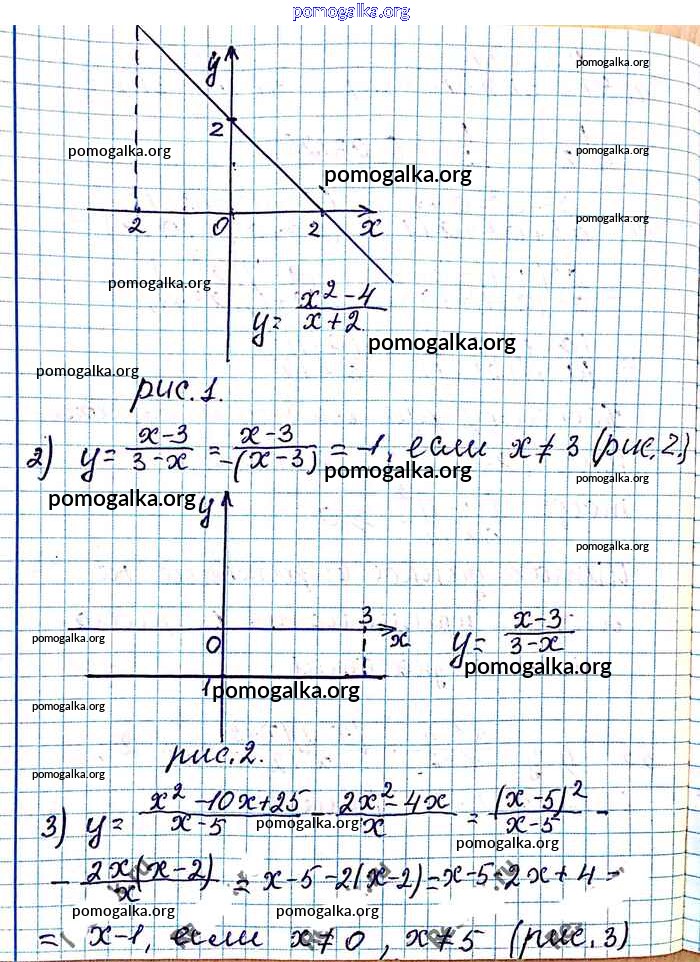 pomogalka.org
y
pomogalka.org
2
pomogalka.org
pomogalka.org
pomogalka.org
pomogalka.org
2 0 2 x
pomogalka.org
y = (x² - 4)/(x + 2)
pomogalka.org
pomogalka.org
рис. 1.
2) y = (x-3)/(3-x) = (x-3)/(-(x-3)) = -1, если x ≠ 3 (рис. 2.)
pomogalka.org
pomogalka.org
pomogalka.org
y
pomogalka.org
3
0 x
y = (x-3)/(3-x)
pomogalka.org
pomogalka.org
1
pomogalka.org
pomogalka.org
рис. 2.
pomogalka.org
3) y = (x² - 10x + 25)/(x - 5) - (2x² - 4x)/x = (x - 5)²/(x - 5) -
pomogalka.org
pomogalka.org
- 2x(x - 2)/x = x - 5 - 2(x - 2) = x - 5 - 2x + 4 =
pomogalka.org
pomogalka.org
= x - 1, если x ≠ 0, x ≠ 5 (рис. 3)